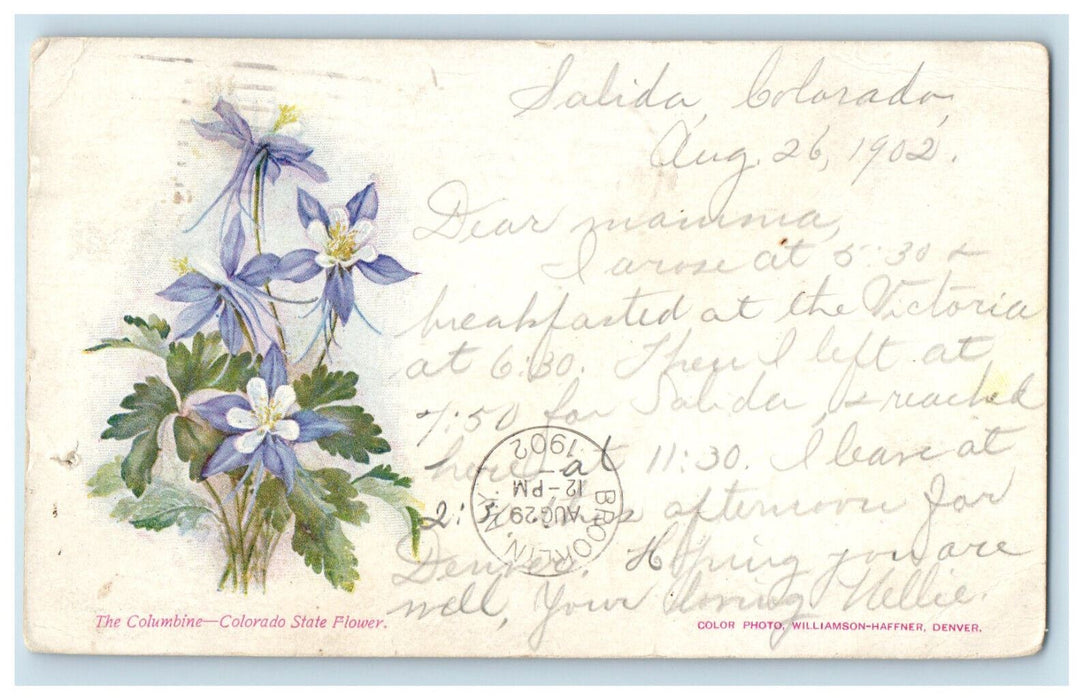 Salida, Colorado,
Aug. 26, 1902.
Dear mamma,
I arose at 5:30 &
breakfasted at the Victoria
at 6:30. Then I left at
7:50 for Salida, & reached
here at 11:30. I leave at
2: this afternoon for
Denver. Hoping you are
well, Your loving Nellie.
BROOKLIN, N.Y.
AUG 29
12-PM
1902
The Columbine—Colorado State Flower.
COLOR PHOTO, WILLIAMSON-HAFFNER, DENVER.